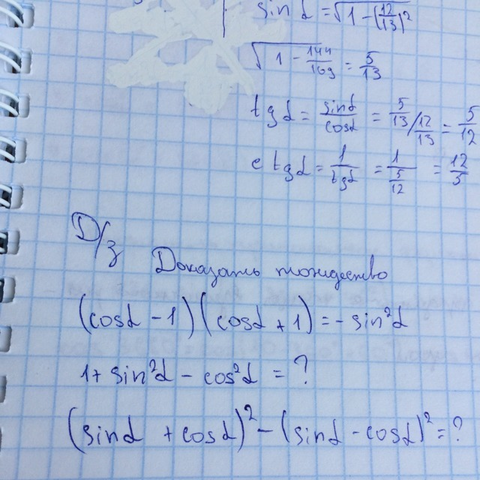 sin α = √1 - (12/13)²
√1 - 144/169 = 5/13
tg α = sin α/cos α = 5/13 / 12/13 = 5/12
ctg α = 1/tg α = 1/(5/12) = 12/5
Д/з Доказать тождество
(cos α - 1)(cos α + 1) = - sin²α
1 + sin²α - cos²α = ?
(sin α + cos α)² - (sin α - cos α)² = ?